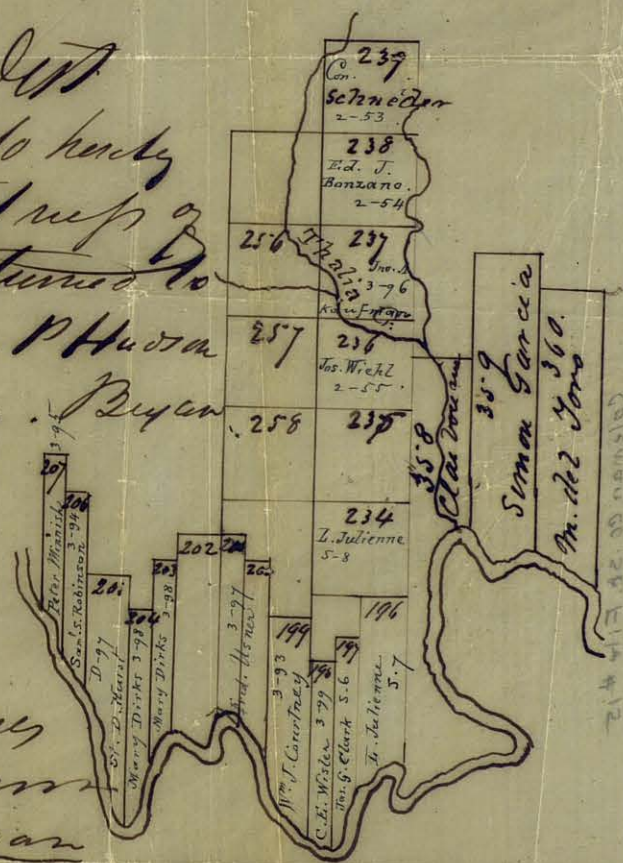 Dept
do hereby
turned to
P Hudson
Bryan
an
239
Con.
Schneder
2-53
238
Ed. J.
Banzano.
2-54
256
237
Thalia
Jno. D.
3-96
Kaufman
257
236
Jos. Wiehl
2-55
258
235
234
L. Julienne
5-8
358
Claiborne
359
Simon Garcia
360.
M. del Toro
207
3-95
Peter Minnish
206
3-94
Saml. S. Robinson
201
D-97
St. D. Hurst
204
Mary Dirks 3-98
203
Mary Dirks 3-98
202
3-97
Usner
199
3-93
Wm J. Courtney
196
C.E. Wisler 3-99
197
Jas. G. Clark 5.6
196
L. Julienne
5.7
Coleman Co Sk File # 15